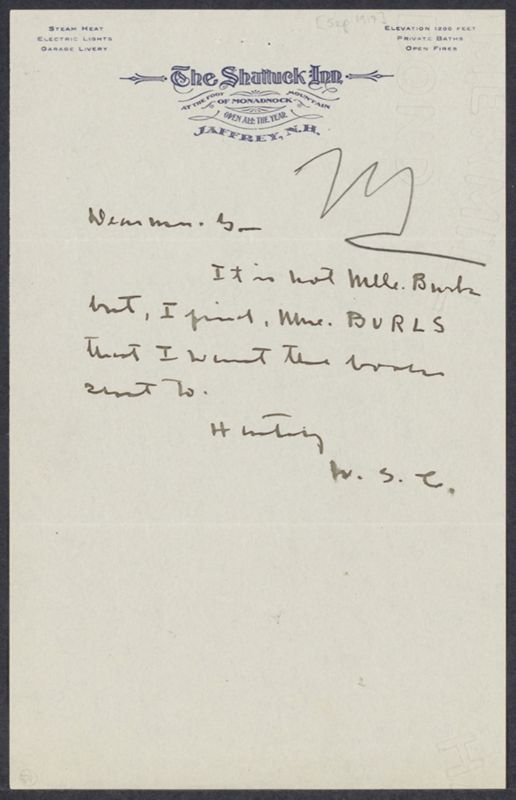 [Sep. 1917]
STEAM HEAT
ELECTRIC LIGHTS
GARAGE LIVERY
ELEVATION 1200 FEET
PRIVATE BATHS
OPEN FIRES
The Shattuck Inn
AT THE FOOT OF MONADNOCK MOUNTAIN
OPEN ALL THE YEAR
JAFFREY, N.H.
Dear Mr. G—
It is not Mlle. Burk
but, I find, Mme. BURLS
that I want the books
sent to.
Hastily
W. S. C.